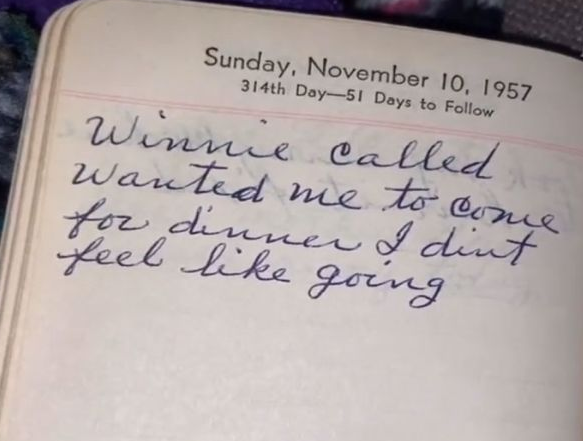 Sunday, November 10, 1957
314th Day—51 Days to Follow
Winnie called
wanted me to come
for dinner I dint
feel like going